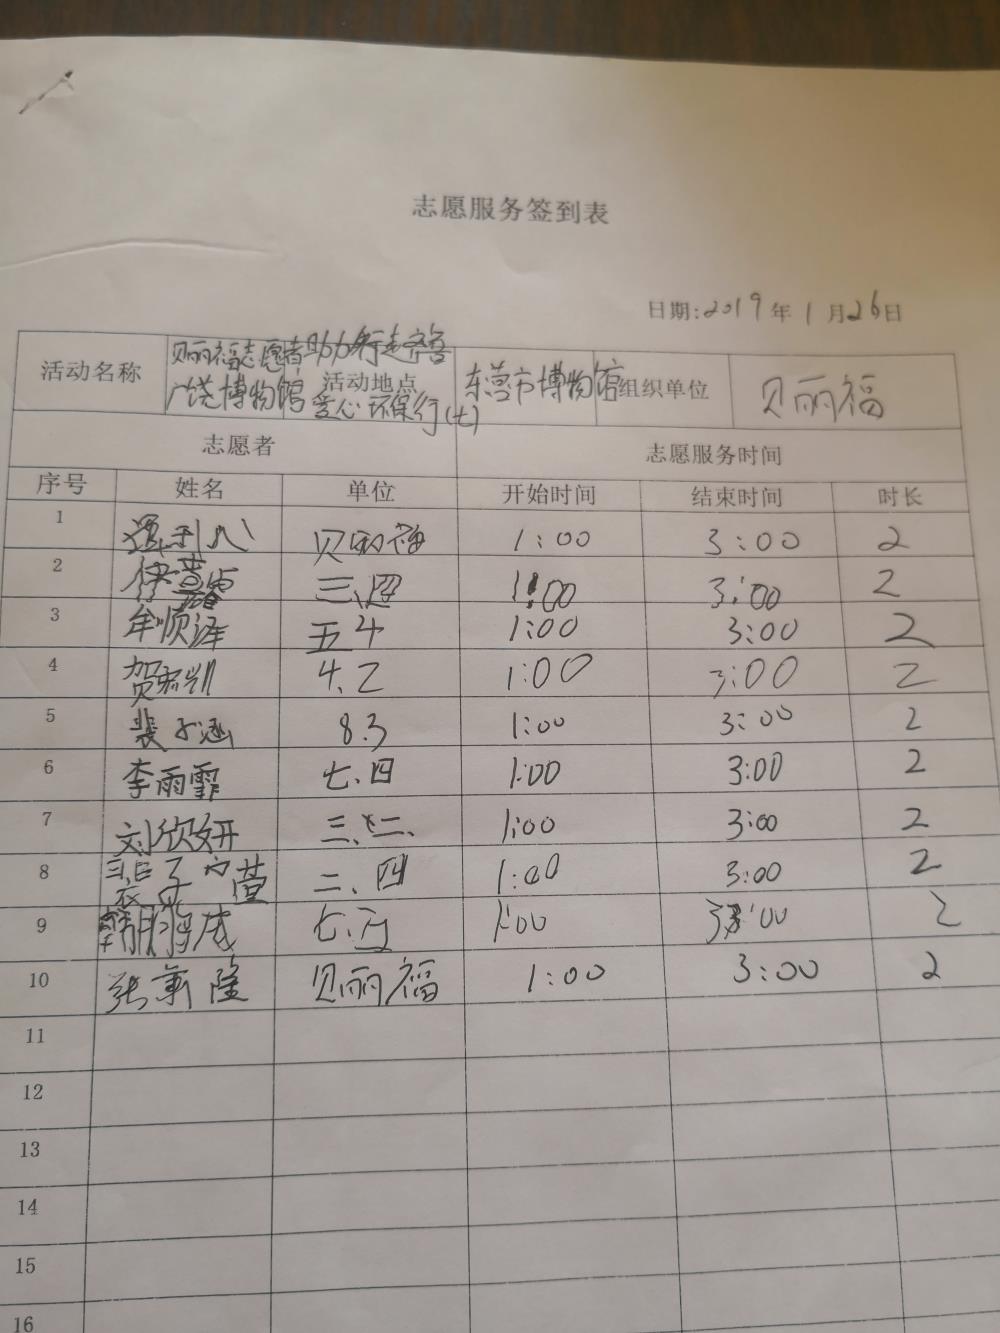 志愿服务签到表
日期:2019年1月26日
活动名称 贝丽福志愿者助力行走齐鲁 广饶博物馆 爱心环保行(七) 活动地点 东营市博物馆 组织单位 贝丽福
志愿者 志愿服务时间
序号 姓名 单位 开始时间 结束时间 时长
1 贝丽福 1:00 3:00 2
2 三、四 1:00 3:00 2
3 牟顺泽 五4 1:00 3:00 2
4 4.2 1:00 3:00 2
5 裴子涵 8.3 1:00 3:00 2
6 李雨霏 七.四 1:00 3:00 2
7 刘欣妍 三、二、 1:00 3:00 2
8 二、四 1:00 3:00 2
9 七.五 1:00 3:00 2
10 张 隆 贝丽福 1:00 3:00 2
11
12
13
14
15
16